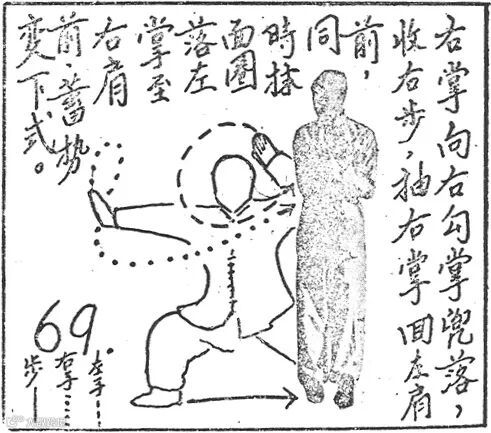 右掌向右勾掌兜落，
收右步，抽右掌回左肩
前，
同
時搭
面圈
落左
掌至
右肩
前，蓄势
變下式。
69
左手
右手
步